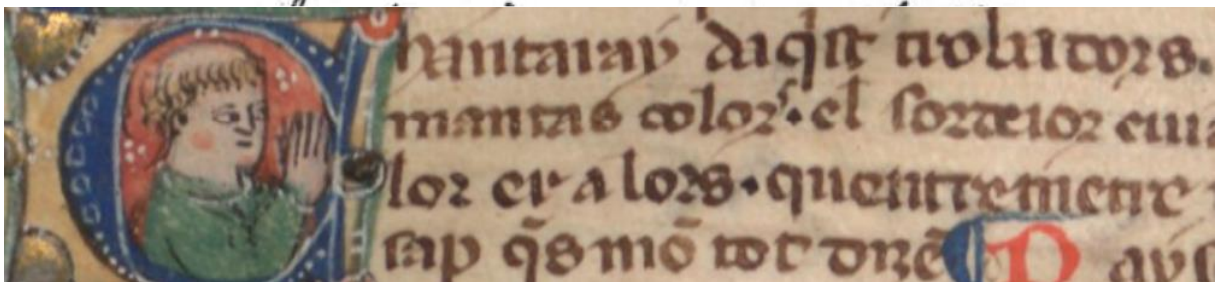 Chantaray daq̄st trobadors.
mantas colors. el sordeior cuia
lor er a lors. quentremetre
sap q̄s mō tot drē P ays